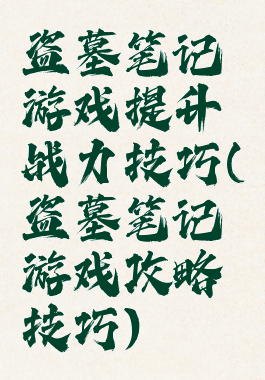 盗墓笔记
游戏提升
战力技巧(
盗墓笔记
游戏攻略
技巧)